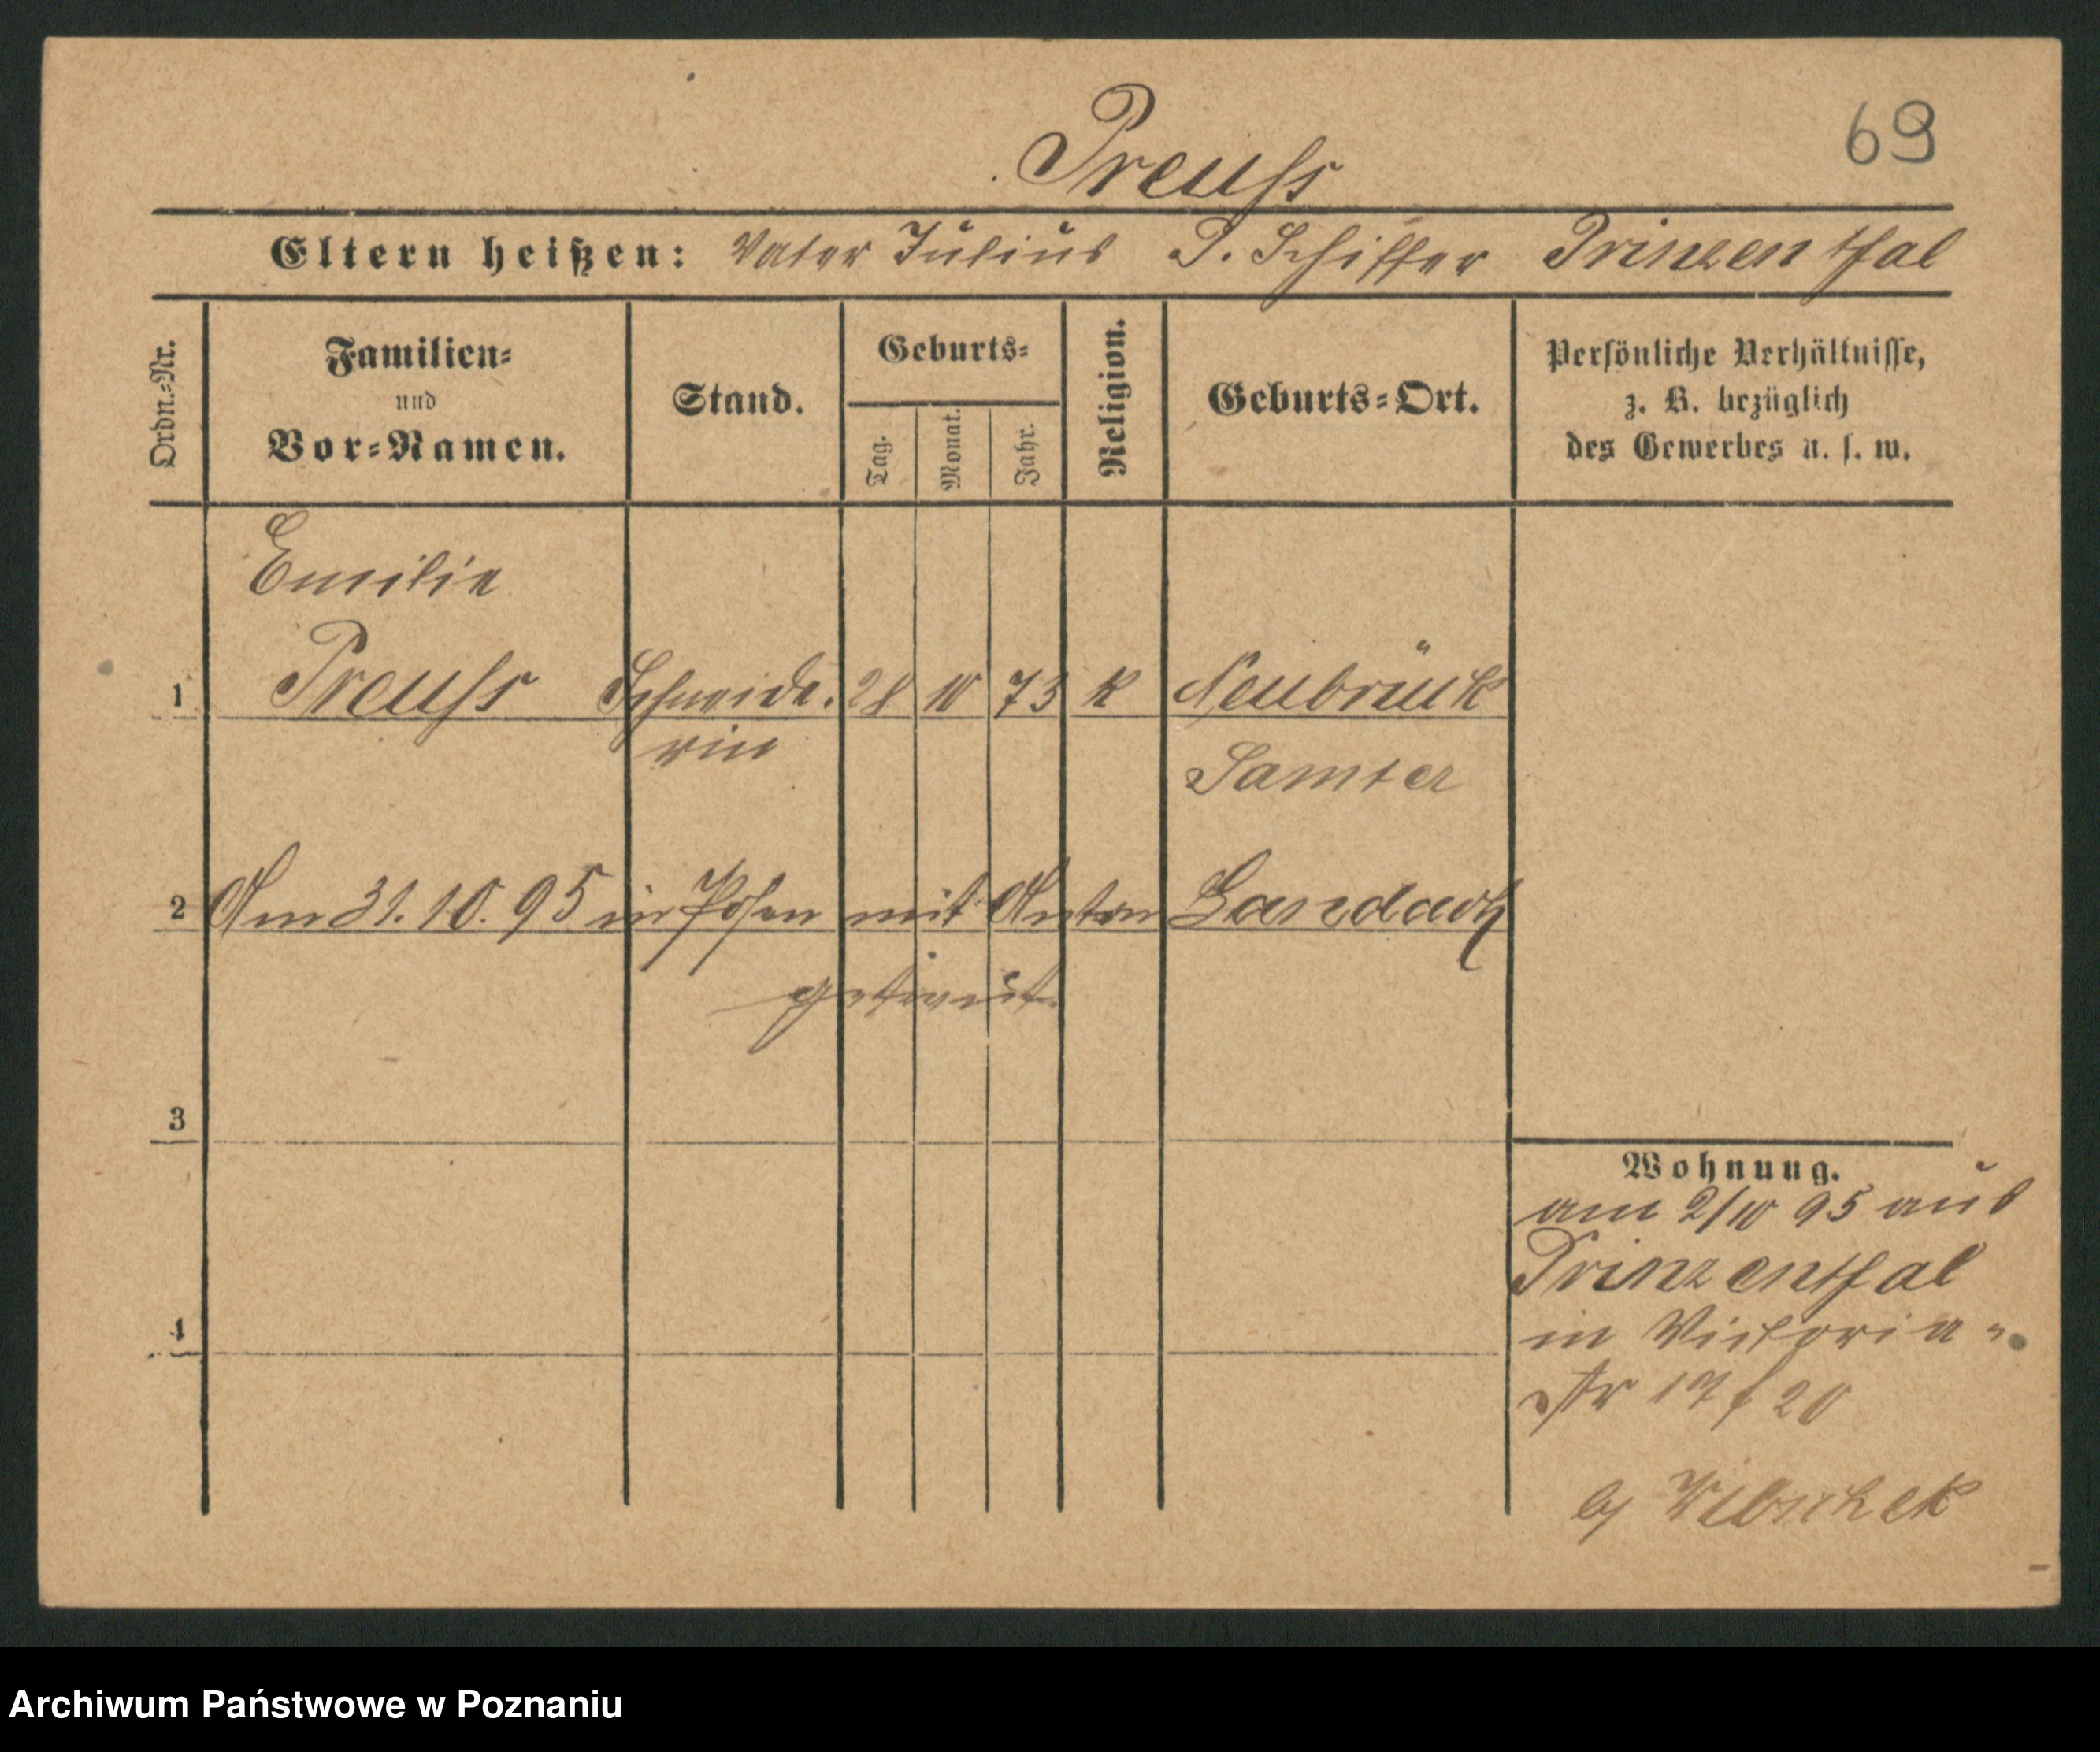 69
Preuss
Eltern heißen: Vater Julius P. Schiffer Prinzenthal
Ordn.-Nr.
Familien-
und
Vor-Namen.
Stand.
Geburts-
Tag.
Monat.
Jahr.
Religion.
Geburts-Ort.
Persönliche Verhältnisse,
z. B. bezüglich
des Gewerbes u. s. w.
Emilie
1 Preuss Schneide. 28 10 73 k Neubrück
rin
Samter
2 Am 31.10.95 in Posen mit Anton
getraut.
3
Wohnung.
am 2/10 95 aus
Prinzenthal
4
in Victoria-
Str 17/20
b/
Archiwum Państwowe w Poznaniu